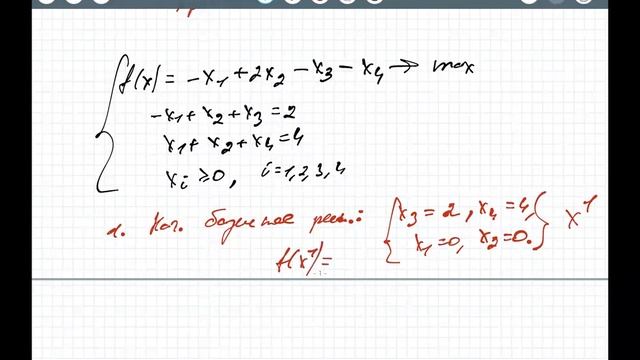 f(x) = -x₁ + 2x₂ - x₃ - x₄ → max
-x₁ + x₂ + x₃ = 2
x₁ + x₂ + x₄ = 4
xᵢ ≥ 0, i = 1, 2, 3, 4
1. Нач. базисное реш.: { x₃ = 2, x₄ = 4,
x₁ = 0, x₂ = 0. } x¹
f(x¹) =